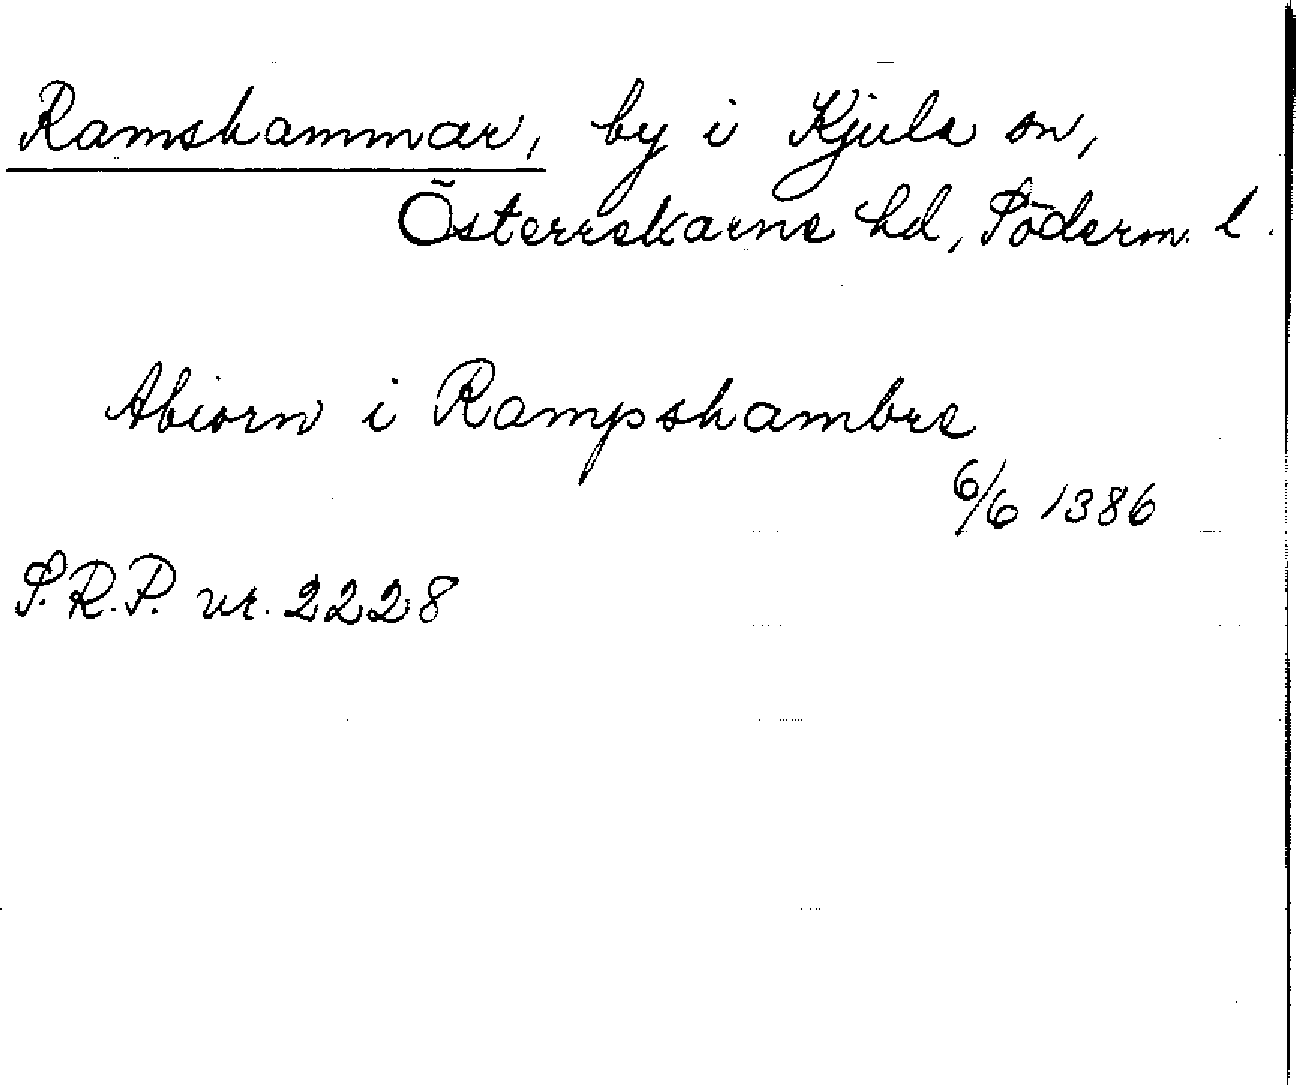 Ramshammar, by i Kjula sn,
Österrekarne hd, Söderm. l.
Abiorn i Rampshambre
6/6 1386
S.R.P. nr. 2228